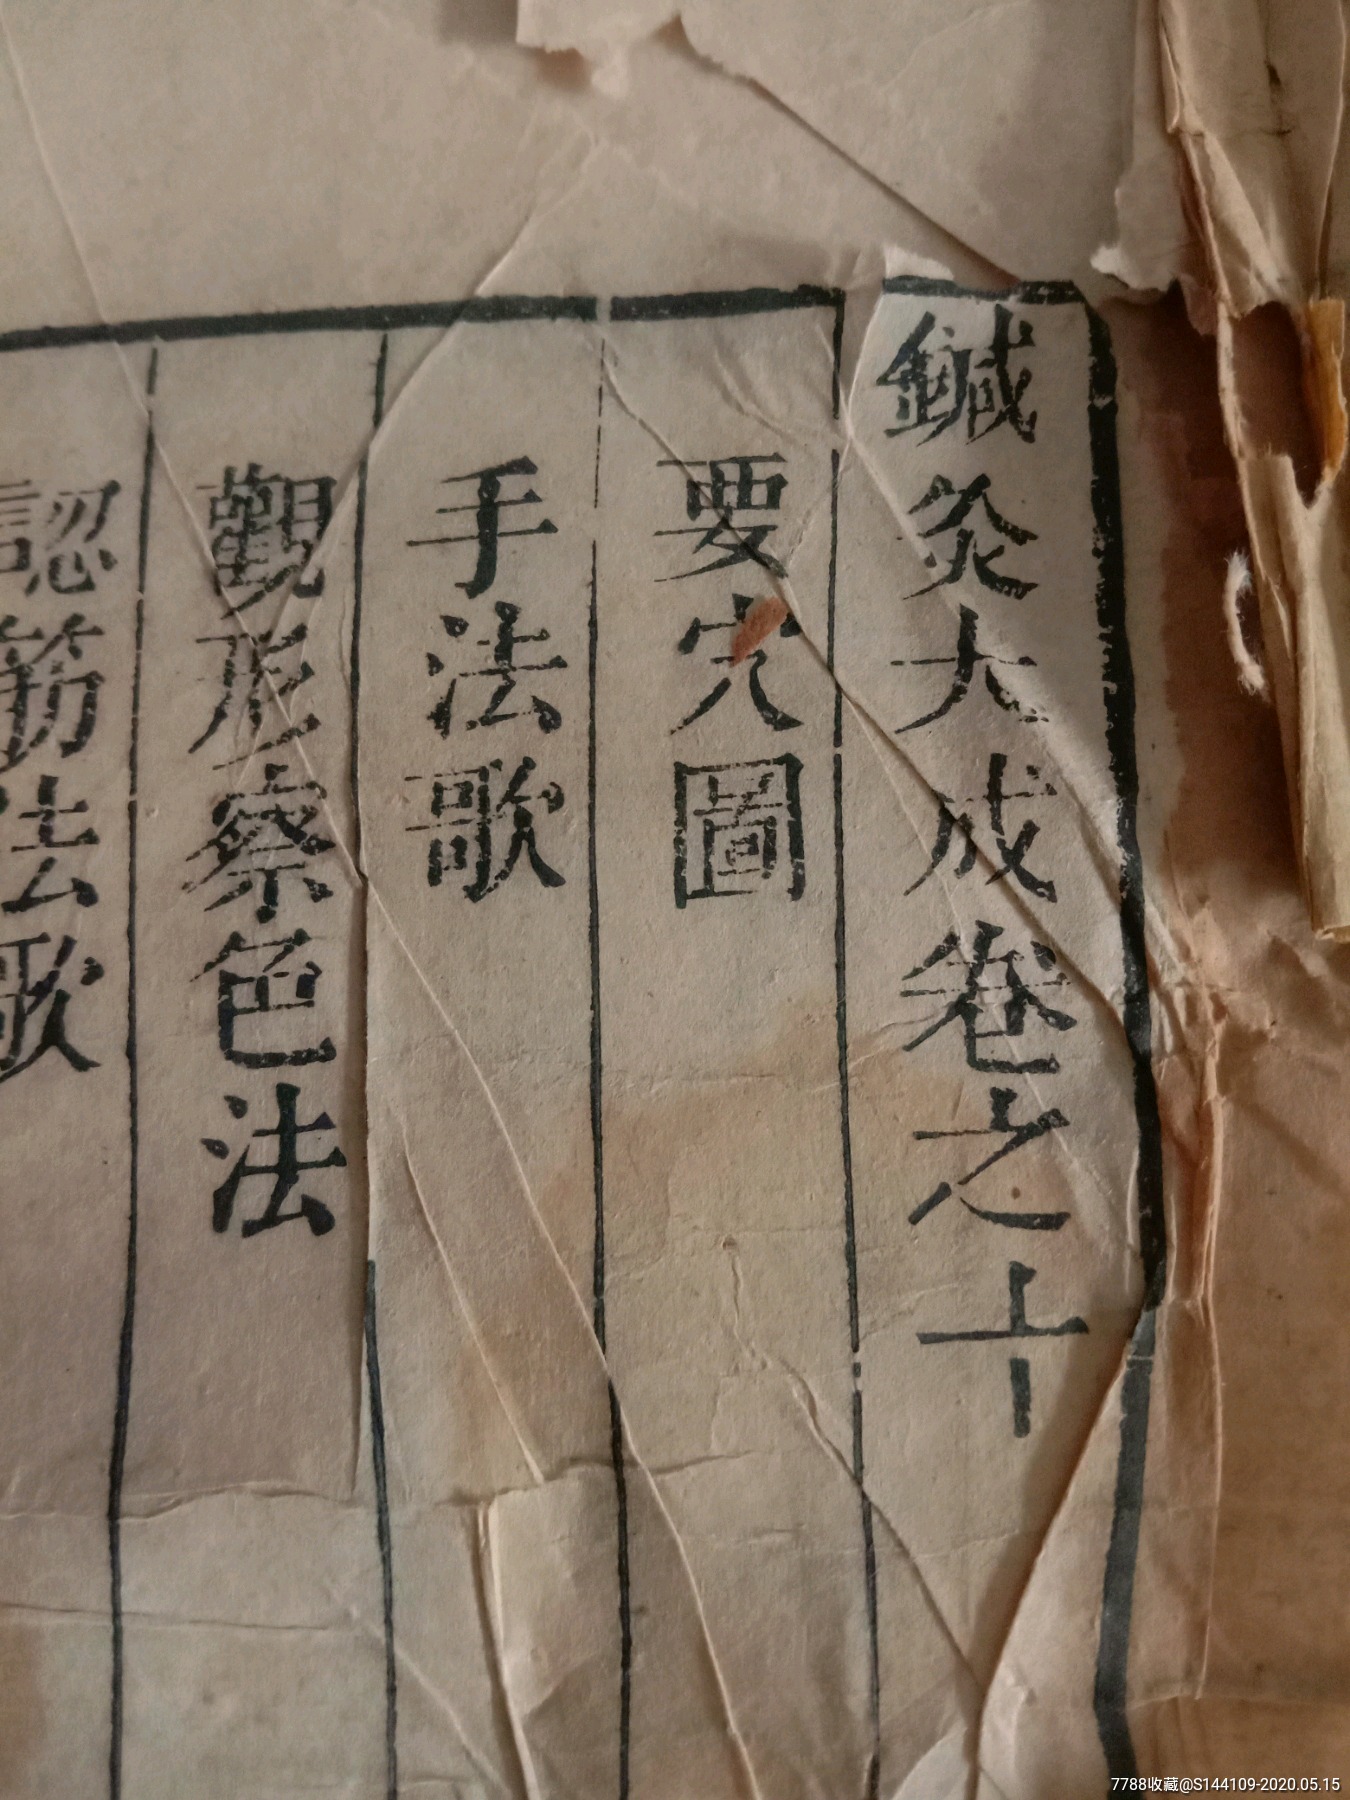 鍼灸大成卷之十
要穴圖
手法歌
觀形察色法
認筋法歌
7788收藏@S144109-2020.05.15